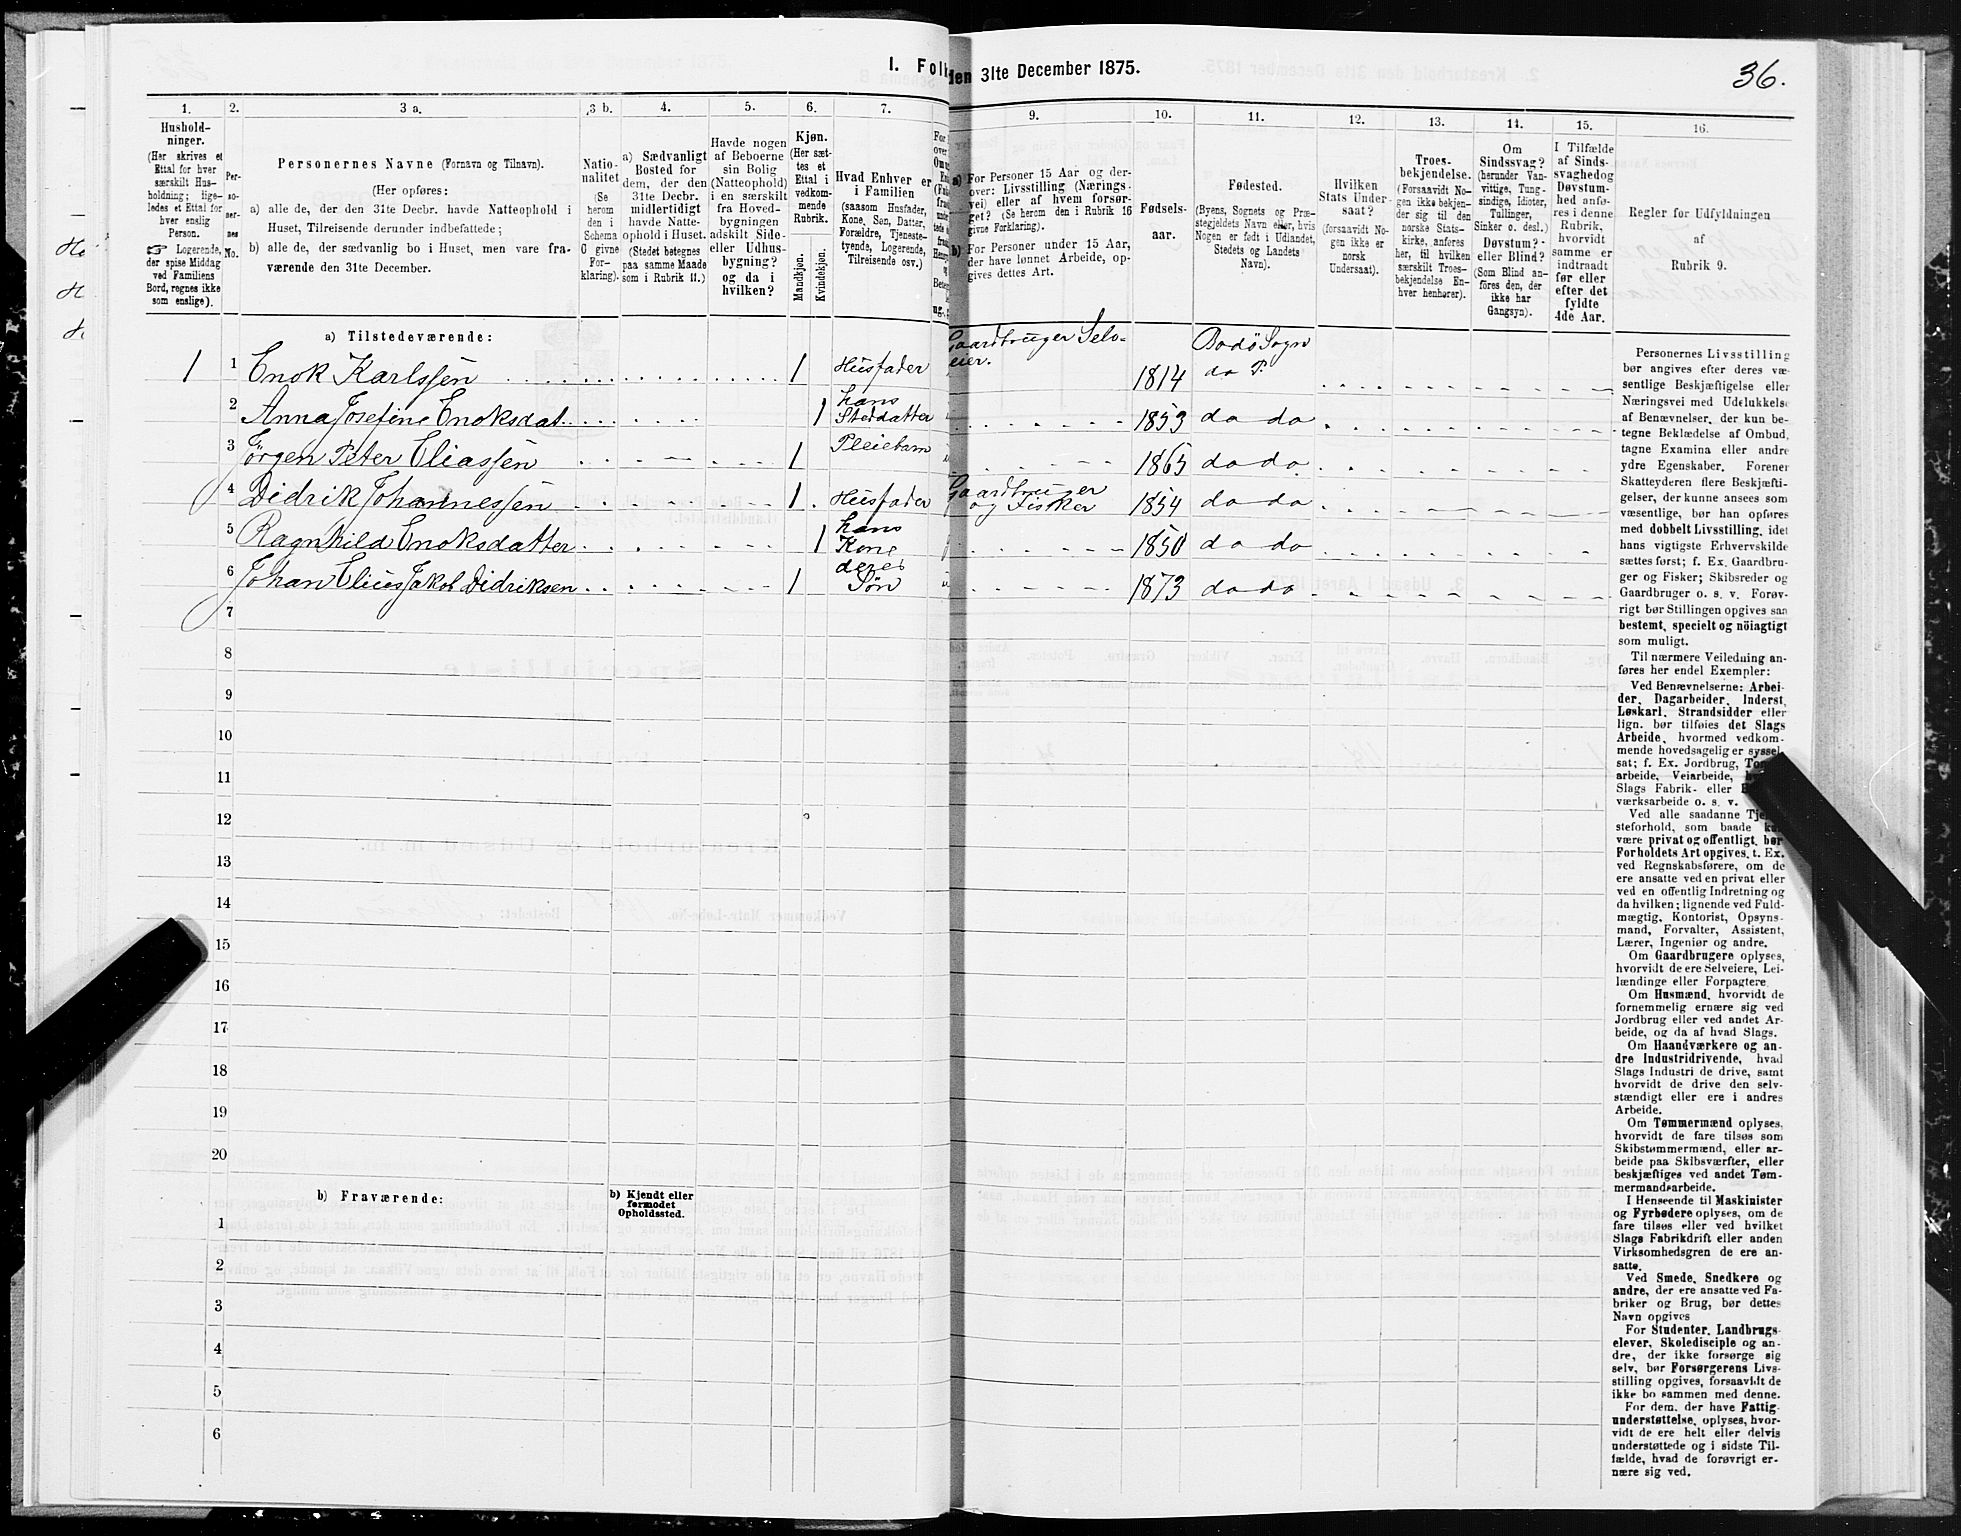 I. Folk
den 31te December 1875.
36.
1. 2. 3 a. 3 b. 4. 5. 6. 7.
9. 10. 11. 12. 13. 14. 15. 16.
Hushold-
ninger.
(Her skrives et
Ettal for hver
særskilt Hus-
holdning; lige-
ledes et Ettal for
hver enslig
Person.
☞ Logerende,
der spise Middag
ved Familiens
Bord, regnes ikke
som enslige).
Per-
so-
ner-
nes
No.
Personernes Navne (Fornavn og Tilnavn).
(Her opføres:
a) alle de, der den 31te Decbr. havde Natteophold i
Huset, Tilreisende derunder indbefattede;
b) alle de, der sædvanlig bo i Huset, men vare fra-
værende den 31te December.
Natio-
nalitet
(Se
herom
den i
Schema
O givne
For-
klaring).
a) Sædvanligt
Bosted for
dem, der den
31te Decbr.
midlertidigt
havde Natte-
ophold i Huset.
(Stedet betegnes
paa samme Maade
som i Rubrik 11.)
Havde nogen
af Beboerne
sin Bolig
(Natteophold)
i en særskilt
fra Hoved-
bygningen
adskilt Side-
eller Udhus-
bygning?
og da i
hvilken?
Kjøn.
(Her sæt-
tes et
Ettal i
vedkom-
mende
Rubrik.
Mandkjøn.
Kvindekjøn.
Hvad Enhver er
i Familien
(saasom Husfader,
Kone, Søn, Datter,
Forældre, Tjeneste-
tyende, Logerende,
Tilreisende osv.)
a) For Personer 15 Aar og der-
over: Livsstilling (Nærings-
vei) eller af hvem forsør-
get? (Se herom den i Rubrik 16
givne Forklaring).
b) For Personer under 15 Aar,
der have lønnet Arbeide, op-
gives dettes Art.
Fødsels-
aar.
Fødested.
(Byens, Sognets og Præ-
stegjeldets Navn eller, hvis
Nogen er født i Udlandet,
Stedets og Landets
Navn).
Hvilken
Stats Under-
saat?
(forsaavidt No-
gen ikke er
norsk
Undersaat).
Troes-
bekjendelse.
(Forsaavidt No-
gen ikke bekjen-
der sig til den
norske Stats-
kirke, anføres
her, til hvilken
særskilt Troes-
bekjendelse En-
hver henhører).
Om
Sindssvag?
(herunder Van-
vittige, Tung-
sindige, Idioter,
Tullinger,
Sinker o. desl.)
Døvstum?
eller Blind?
(Som Blind an-
føres den, der
ikke har
Gangsyn).
I Tilfælde
af Sinds-
svaghed og
Døvstum-
hed anfø-
res i denne
Rubrik,
hvorvidt
samme er
indtraadt
før eller
efter det
fyldte
4de Aar.
Regler for Udfyldningen
af
Rubrik 9.
a) Tilstedeværende:
1 1 Enok Karlssen 1 Husfader Gaardbruger Selv-
eier. 1814 Bodö Sogn
do P.
2 Anna Josefine Enoksdat. 1 hans
Steddatter 1853 do do
3 Jørgen Peter Eliassen 1 Pleiebarn 1865 do do
4 Didrik Johannessen 1 Husfader Gaardbruger
og Fisker 1854 do do
5 Ragnhild Enoksdatter 1 hans
Kone 1850 do do
6 Johan Elius Jakob Didriksen 1 deres
Søn 1873 do do
7
8
9
10
11
12
13
14
15
16
17
18
19
20
b) Fraværende:
b) Kjendt eller
formodet
Opholdssted.
1
2
3
4
5
6
Personernes Livsstilling
bør angives efter deres væ-
sentlige Beskjæftigelse eller
Næringsvei med Udelukkelse
af Benævnelser, der kun be-
tegne Beklædelse af Ombud,
tagne Examina eller andre
ydre Egenskaber. Forener
Skatteyderen flere Beskjæfti-
gelser, der kunne ansees som
væsentlige, bør han opføres
med dobbelt Livsstilling, idet
hans vigtigste Erhvervskilde
sættes først; f. Ex. Gaardbru-
ger og Fisker; Skibsreder og
Gaardbruger o. s. v. Forøv-
rigt bør Stillingen opgives saa
bestemt, specielt og nöiagtigt
som muligt.
Til nærmere Veiledning an-
føres her endel Exempler:
Ved Benævnelserne: Arbei-
der, Dagarbeider, Inderst,
Løskarl, Strandsidder eller
lign. bør tilføies det Slags
Arbeide, hvormed vedkom-
mende hovedsagelig er syssel-
sat; f. Ex. Jordbrug,
arbeide, Veiarbeide,
Slags Fabrik- eller
værksarbeide o. s. v.
Ved alle saadanne Tje-
steforhold, som baade
være privat og offentligt, bør
Forholdets Art opgives, t. Ex.
ved Regnskabsførere, om de
ere ansatte ved en privat eller
ved en offentlig Indretning og
da hvilken; lignende ved Fuld-
mægtig, Kontorist, Opsyns-
mand, Forvalter, Assistent,
Lærer, Ingeniør og andre.
Om Gaardbrugere oplyses,
hvorvidt de ere Selveiere, Lei-
lændinge eller Forpagtere.
Om Husmænd, hvorvidt de
fornemmelig ernære sig ved
Jordbrug eller ved andet Ar-
beide, og da af hvad Slags.
Om Haandværkere og an-
dre Industridrivende, hvad
Slags Industri de drive, samt
hvorvidt de drive den selv-
stændigt eller ere i andres
Arbeide.
Om Tømmermænd oplyses,
hvorvidt de fare tilsøs som
Skibstømmermænd, eller ar-
beide paa Skibsværfter, eller
beskjæftiges ved andet Tøm-
mermandsarbeide.
I Henseende til Maskinister
og Fyrbødere oplyses, om de
fare tilsøs eller ved hvilket
Slags Fabrikdrift eller anden
Virksomhedsgren de ere an-
satte.
Ved Smede, Snedkere og
andre, der ere ansatte ved Fa-
briker og Brug, bør dettes
Navn opgives
For Studenter, Landbrugs-
elever, Skoledisciple og an-
dre, der ikke forsørge sig
selv, bør Forsørgerens Livs-
stilling opgives, forsaavidt de
ikke bo sammen med denne.
For dem, der have Fattig-
understøttelse, oplyses, hvor-
vidt de ere helt eller delvis
understøttede og i sidste Til-
fælde, hvad de forøvrigt er-
nære sig ved.